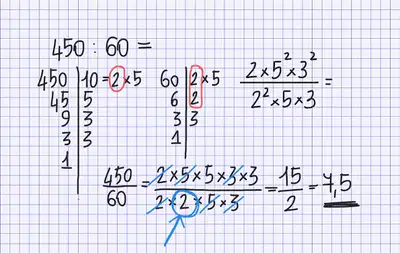 450 : 60 =
450 | 10 = 2 × 5
45 | 5
9 | 3
3 | 3
1 |
60 | 2 × 5
6 | 2
3 | 3
1 |
2 × 5² × 3² / 2² × 5 × 3 =
450 / 60 = 2 × 5 × 5 × 3 × 3 / 2 × 2 × 5 × 3 = 15 / 2 = 7,5